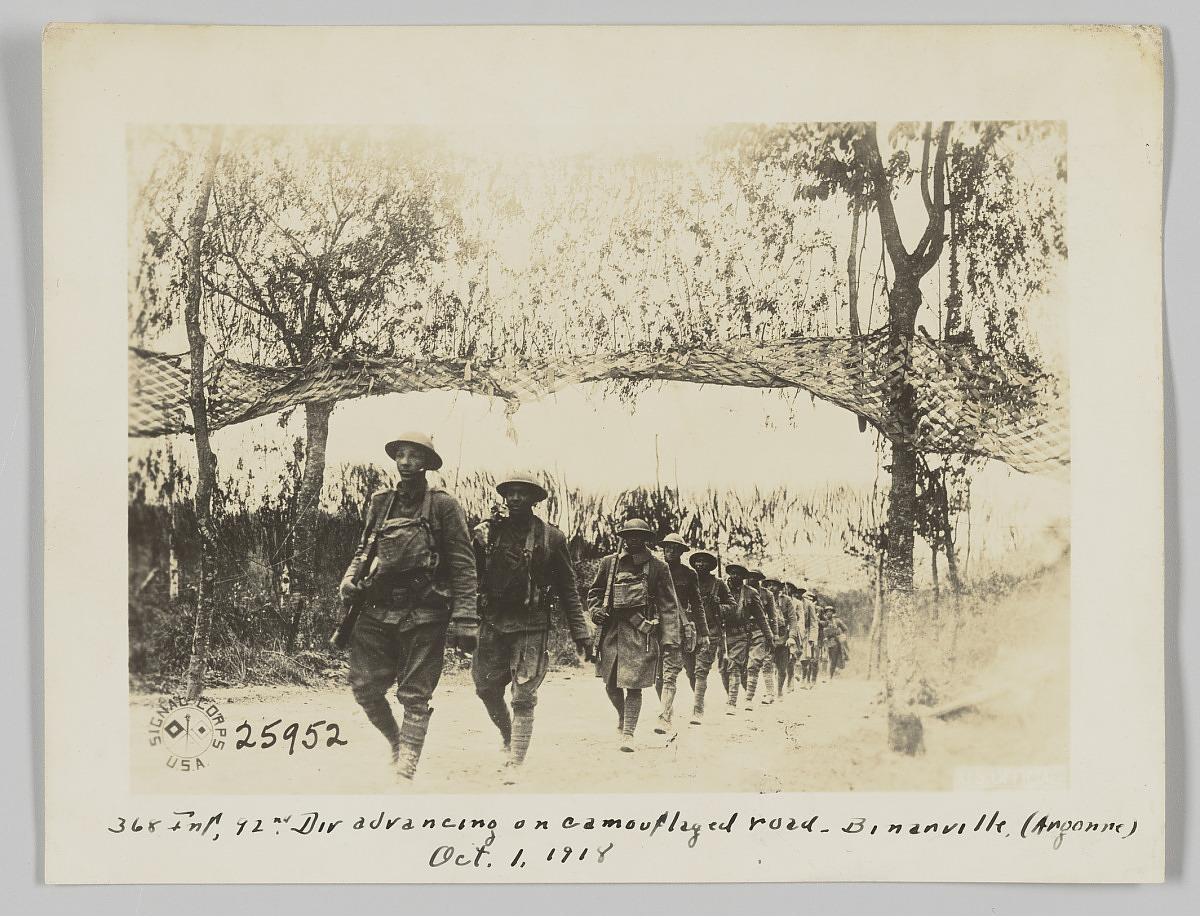 SIGNAL CORPS
U.S.A.
25952
368 Inf, 92nd Div advancing on camouflaged road - Binanville, (Argonne)
Oct. 1, 1918